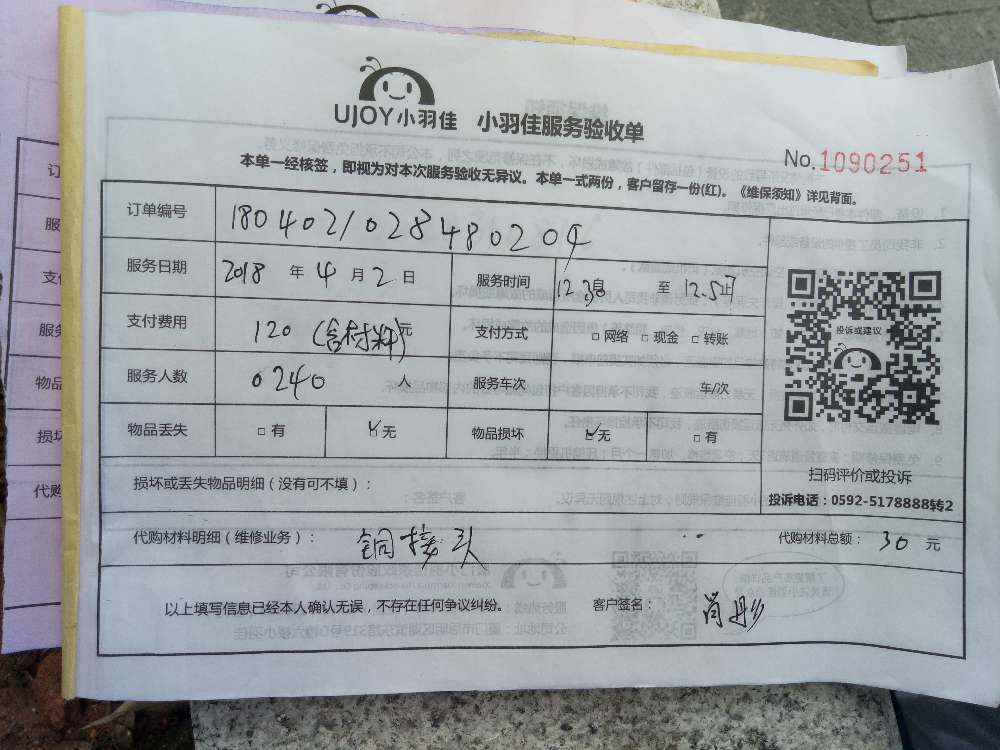 UJOY小羽佳 小羽佳服务验收单
No.1090251
本单一经核签，即视为对本次服务验收无异议。本单一式两份，客户留存一份(红)。《维保须知》详见背面。
订单编号 1804021028480204
服务日期 2018 年 4 月 2 日 服务时间 至
支付费用 120 (含材料)元 支付方式 □网络 □现金 □转账
服务人数 0240 人 服务车次 车/次
物品丢失 □有 ☑无 物品损坏 ☑无 □有
投诉或建议
扫码评价或投诉
投诉电话：0592-5178888转2
损坏或丢失物品明细（没有可不填）：
代购材料明细（维修业务）： 铜接头 代购材料总额： 30 元
以上填写信息已经本人确认无误，不存在任何争议纠纷。 客户签名：
订
服
支
服务
物品
损坏
代购